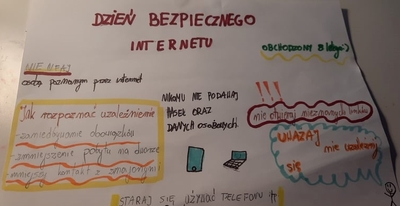 DZIEŃ BEZPIECZNEGO
INTERNETU
OBCHODZONY 8 lutego
NIE UFAJ
osobą poznanym przez internet
Jak rozpoznać uzależnienie
zaniedbywanie obowiązków
zmniejszenie pobytu na dworze
mniejszy kontakt z znajomymi
NIKOMU NIE PODAWAJ
HASEŁ ORAZ
DANYCH OSOBOWYCH
!!!
nie otwieraj nieznanych linków
UWAŻAJ
nie uzależnij
się
STARAJ SIĘ UŻYWAĆ TELEFONU